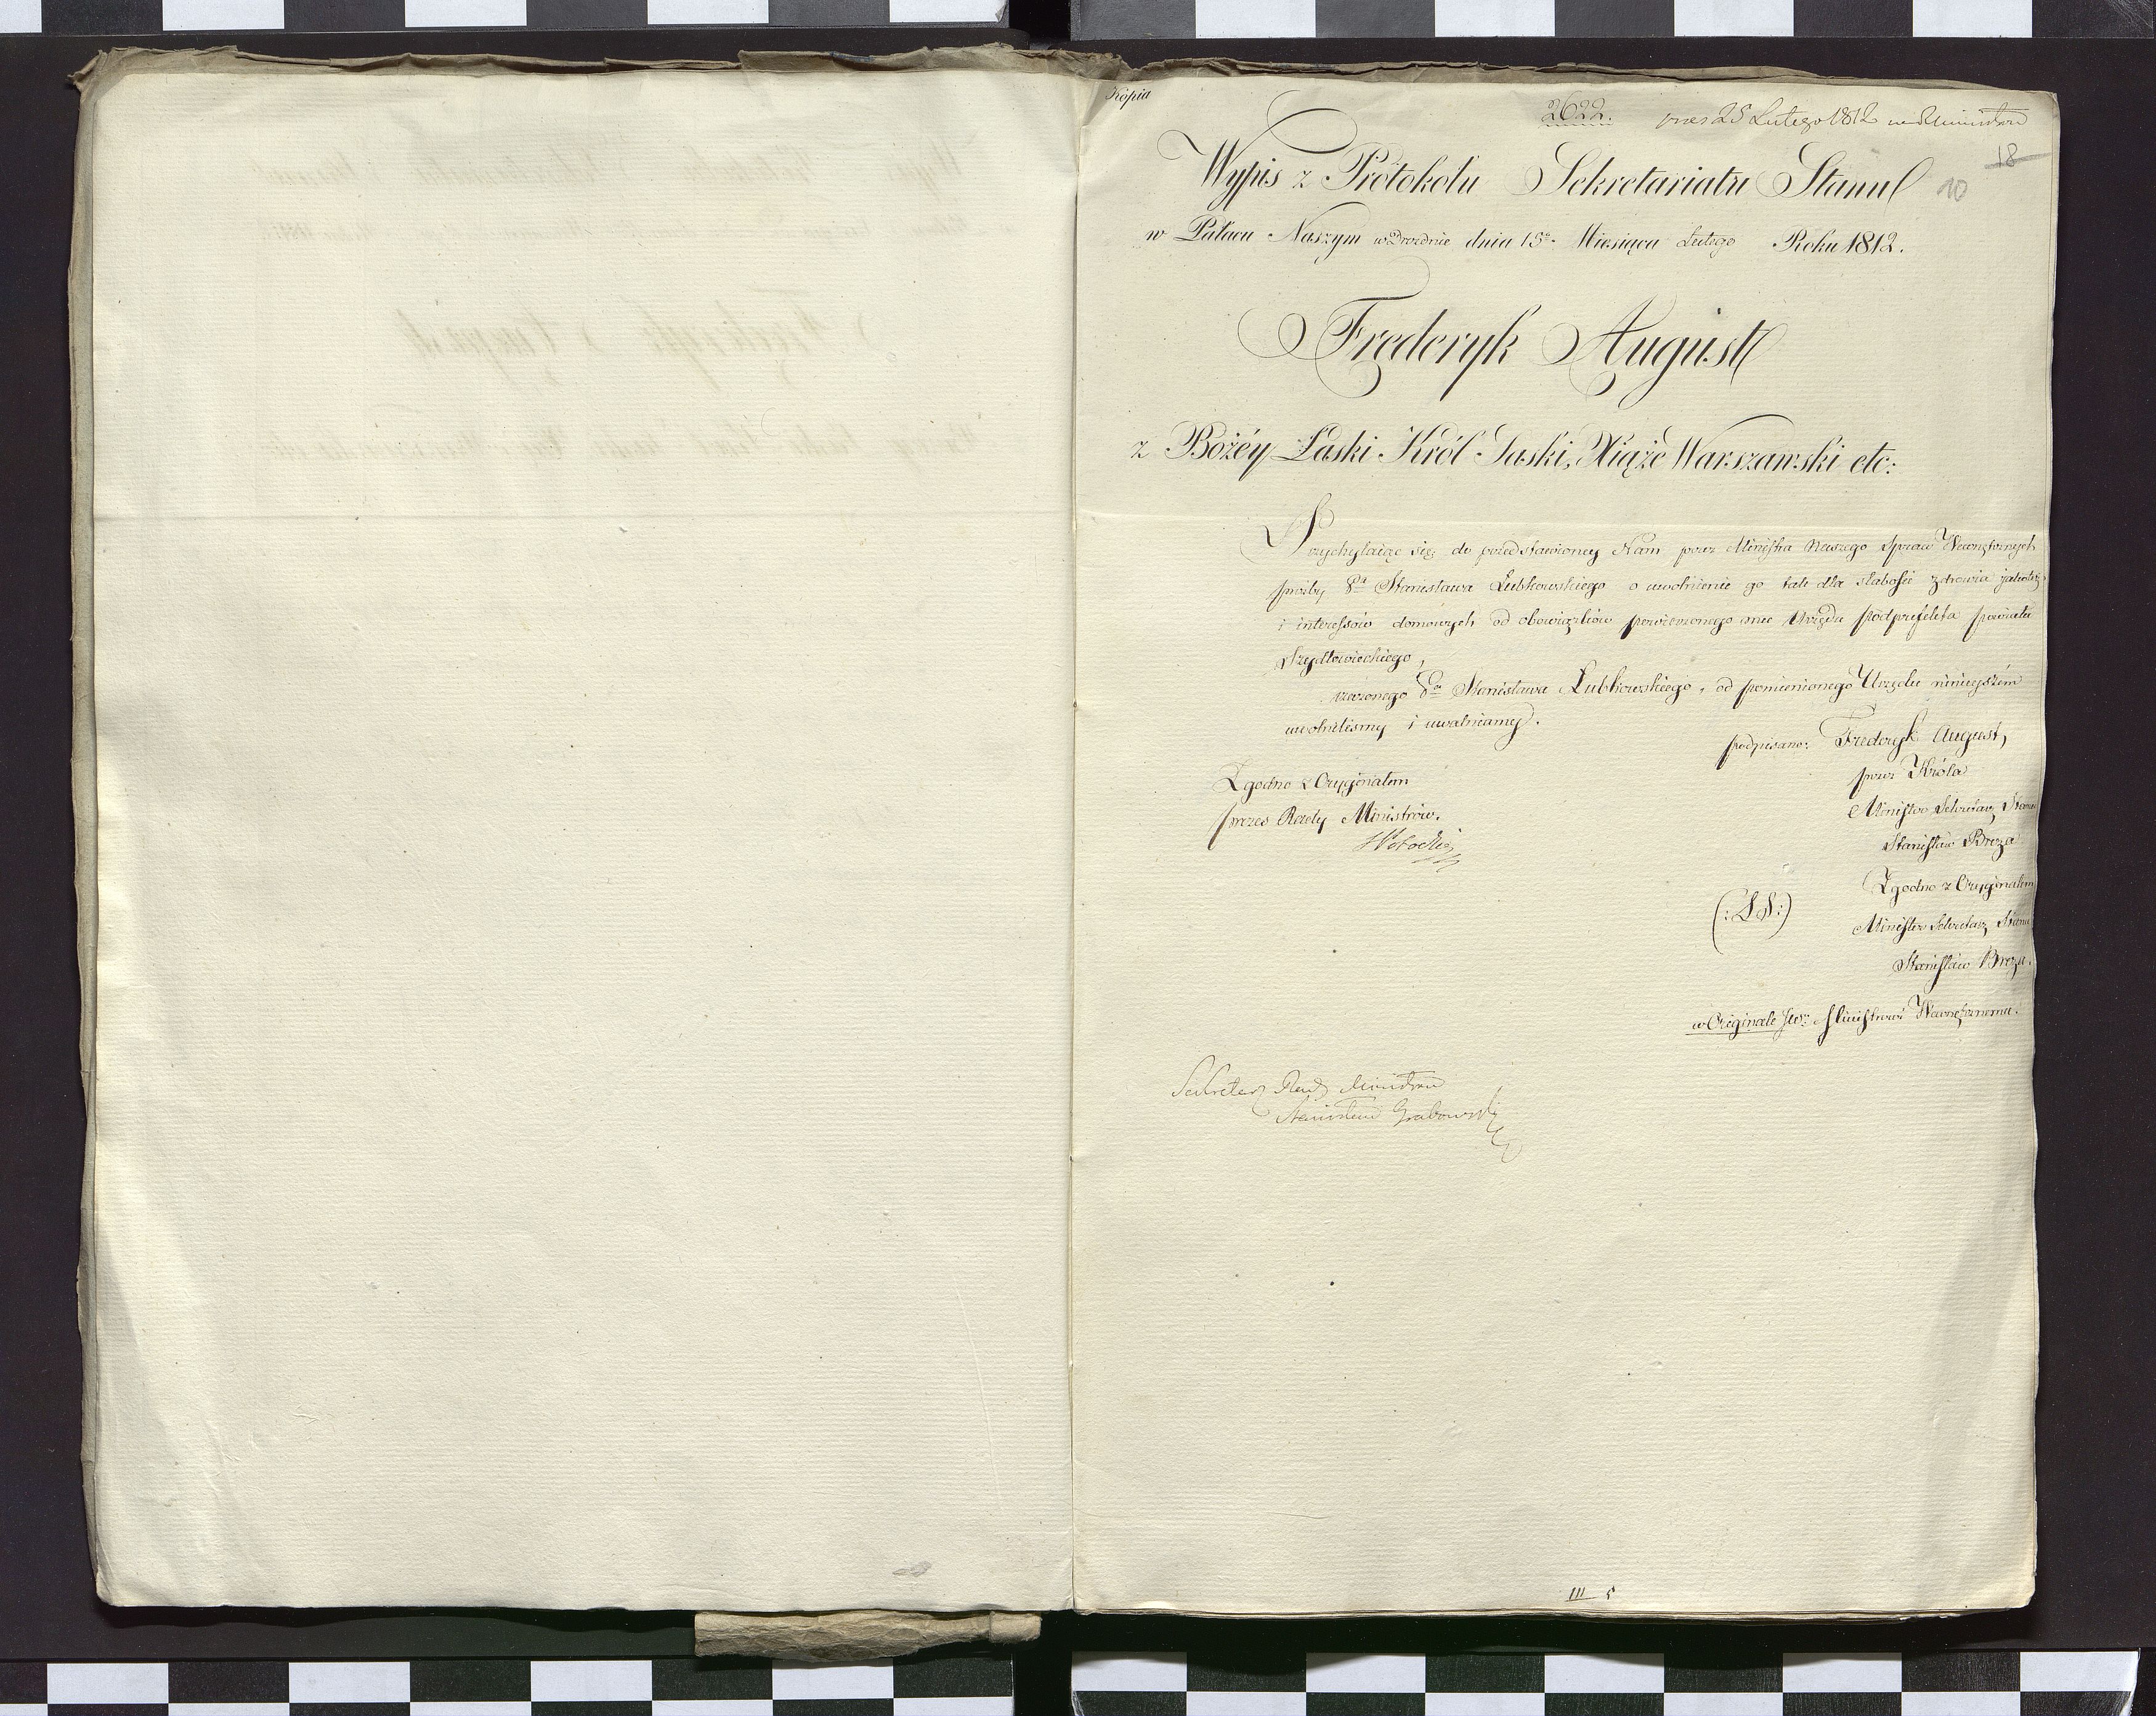 Kopia
2622. pres 25 Lutego 1812 Ministrów
18
10
Wypis z Protokołu Sekretariatu Stanu
w Pałacu Naszym w Dreznie dnia 15º Miesiąca Lutego Roku 1812.
Frederyk August
z Bożéy Łaski Król Saski, Xiąże Warszawski etc:
Przychylaiąc się do przedstawioney Nam przez Ministra Naszego Spraw Wewnętrznych
prośby Stanisława Lubkowskiego o uwolnienie go tak dla słabości zdrowia jakoteż
i interessów domowych od obowiązków powierzonego mu Urzędu podprefekta powiatu
Szydłowieckiego,
rzeczonego Stanisława Lubkowskiego, od pomienionego Urzędu ninieyszém
uwolniliśmy i uwalniamy.
podpisano: Frederyk August,
przez Króla
Minister Sekretarz Stanu
Stanisław Breza
Zgodno z Oryginałem
prezes Rady Ministrów.
(:L.S:)
Zgodno z Oryginałem
Minister Sekretarz Stanu
Stanisław Breza.
w Originale Jwu Ministrowi Wewnętrznemu.
Sekretarz Rady Ministrów
Stanisław Grabowski
III 5